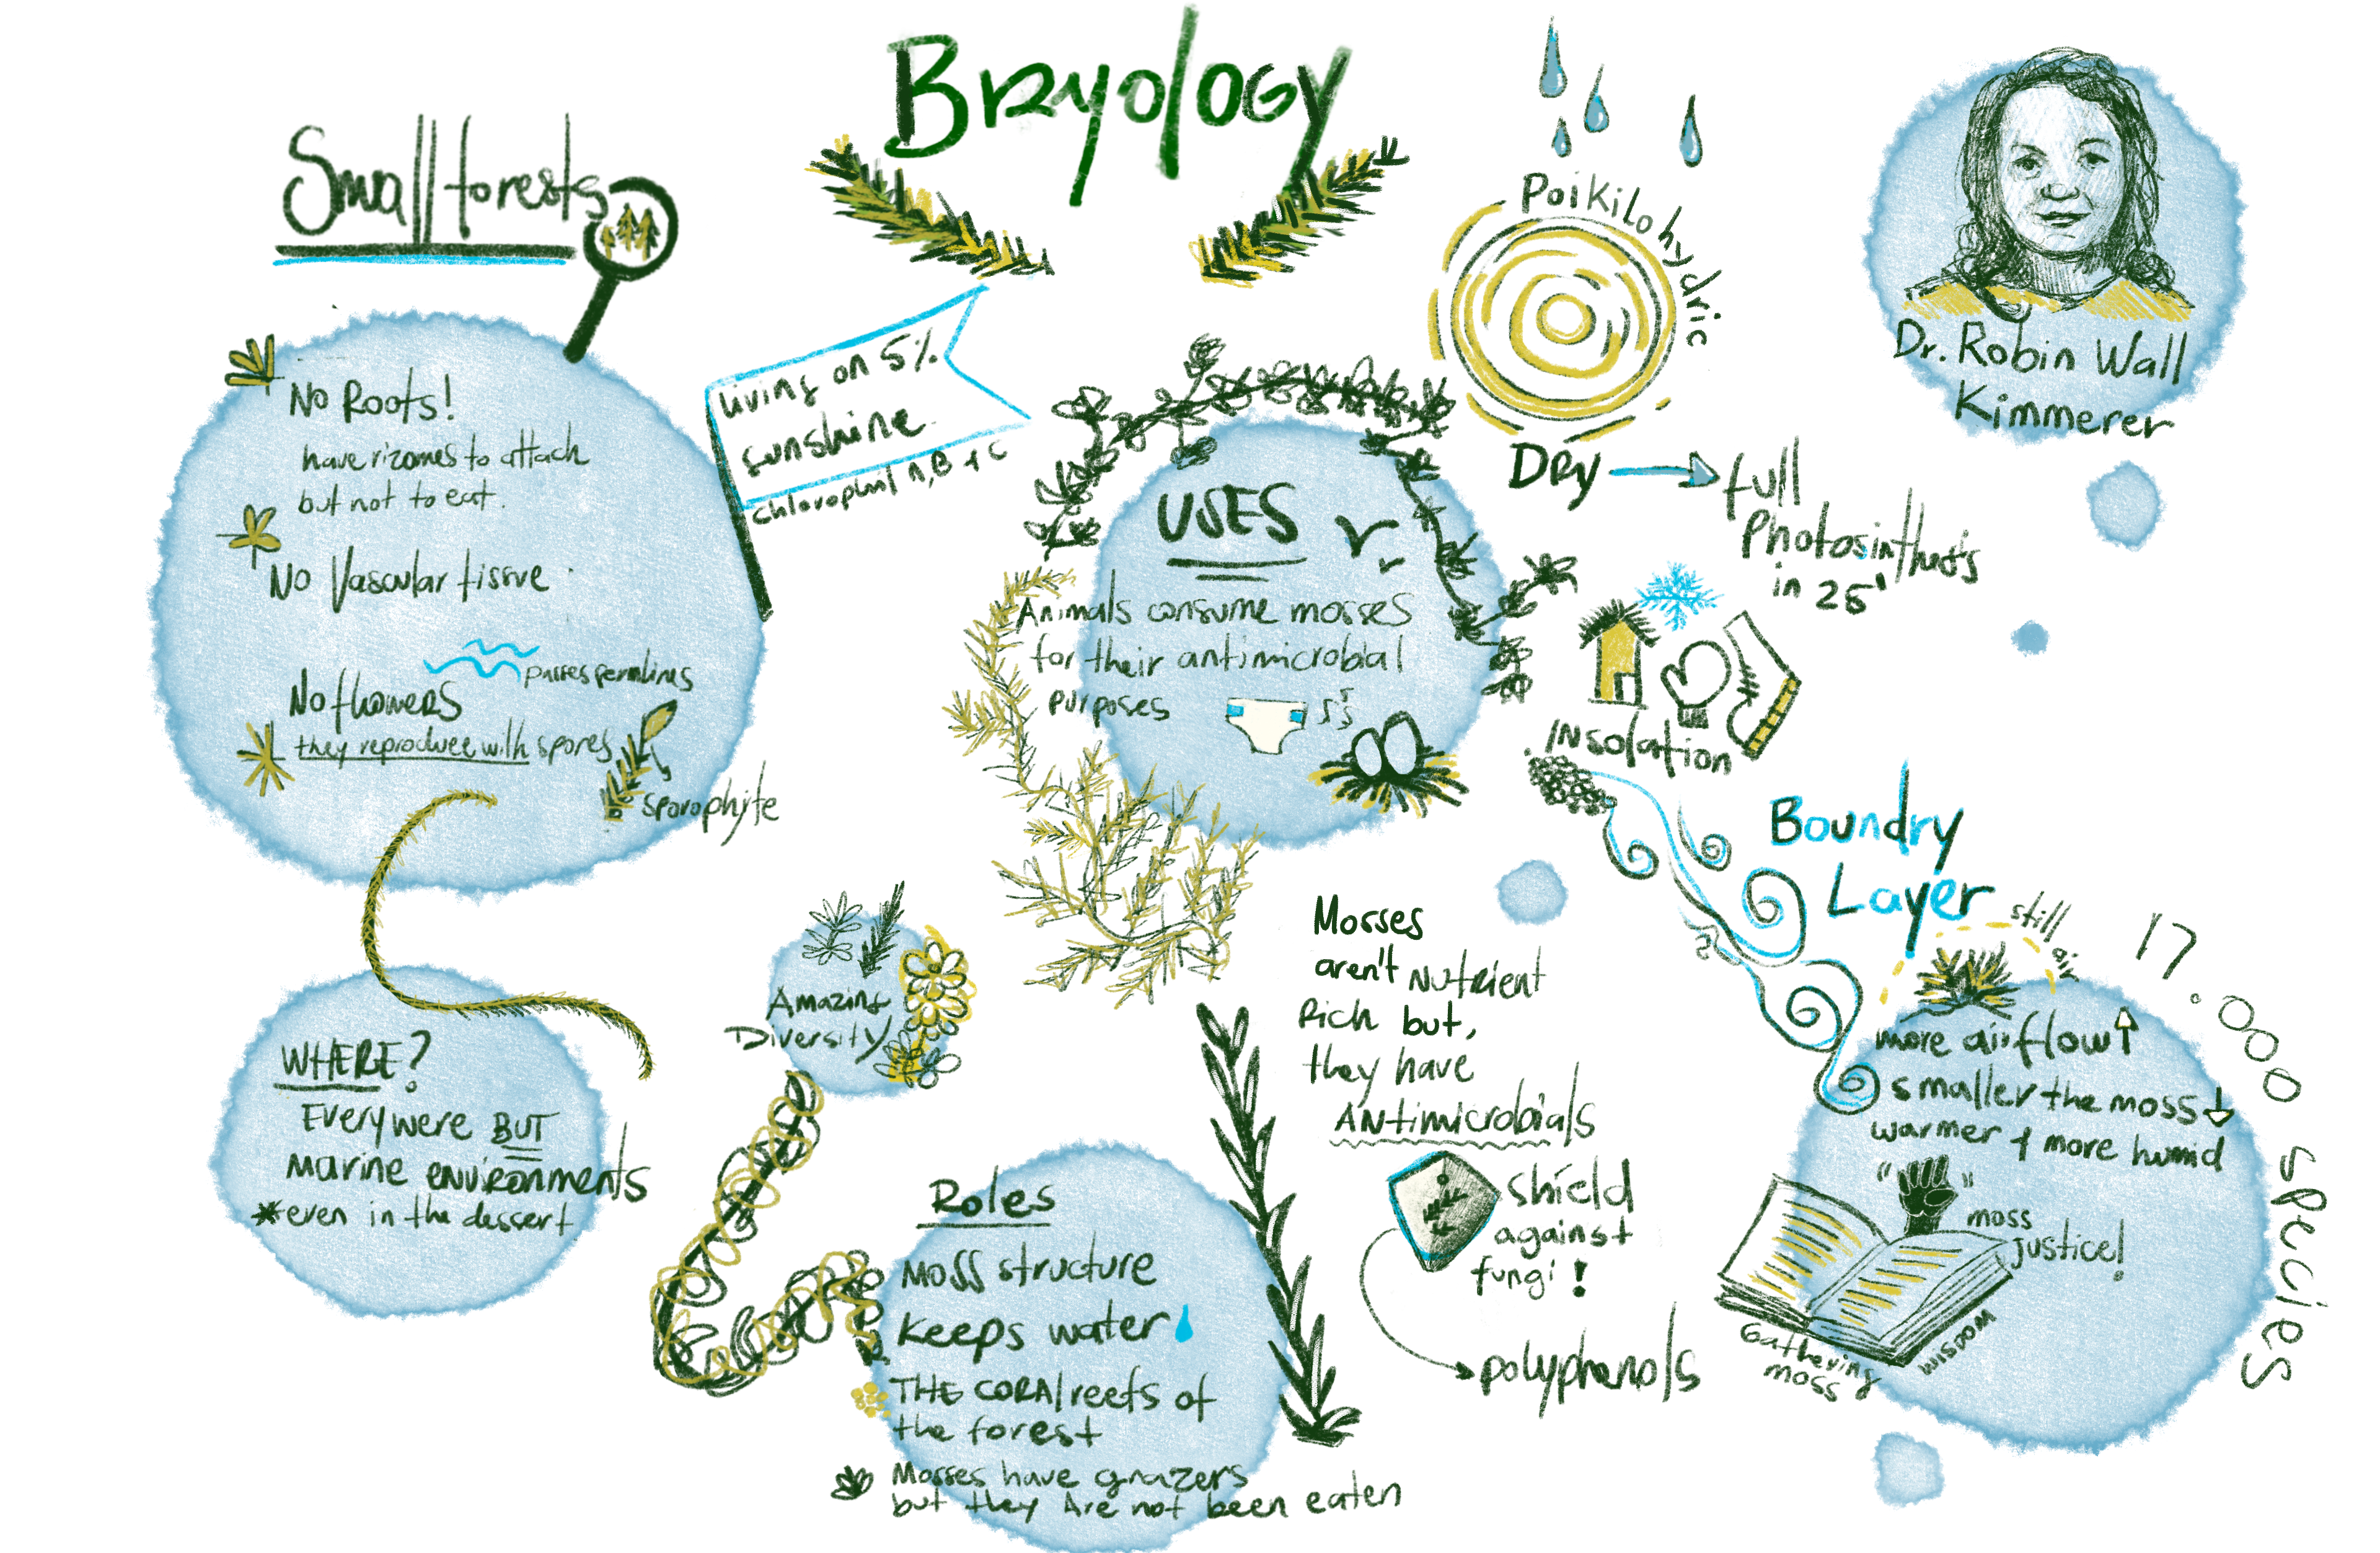 Bryology
Small forests
No Roots!
have rizomes to attach
but not to eat.
No Vascular tissue
No flowers
they reproduce with spores
sporophyte
living on 5%
sunshine
A, B + C
Poikilohydric
Dry
full
Photosinthesis
in 25'
Dr. Robin Wall
Kimmerer
USES
Animals consume mosses
for their antimicrobial
purposes
INsolation
Boundry
Layer
still air
17.000 species
more airflow
smaller the moss
warmer + more humid
moss
justice!
Gathering
moss
wossim
WHERE?
Everywere BUT
marine environments
*even in the dessert
Amazing
Diversity
Roles
Moss structure
Keeps water
THE CORAl reefs of
the forest
Mosses have grazers
but they Are not been eaten
Mosses
aren't Nutrient
Rich but,
they have
ANtimicrobials
shield
against
fungi!
polyphenols